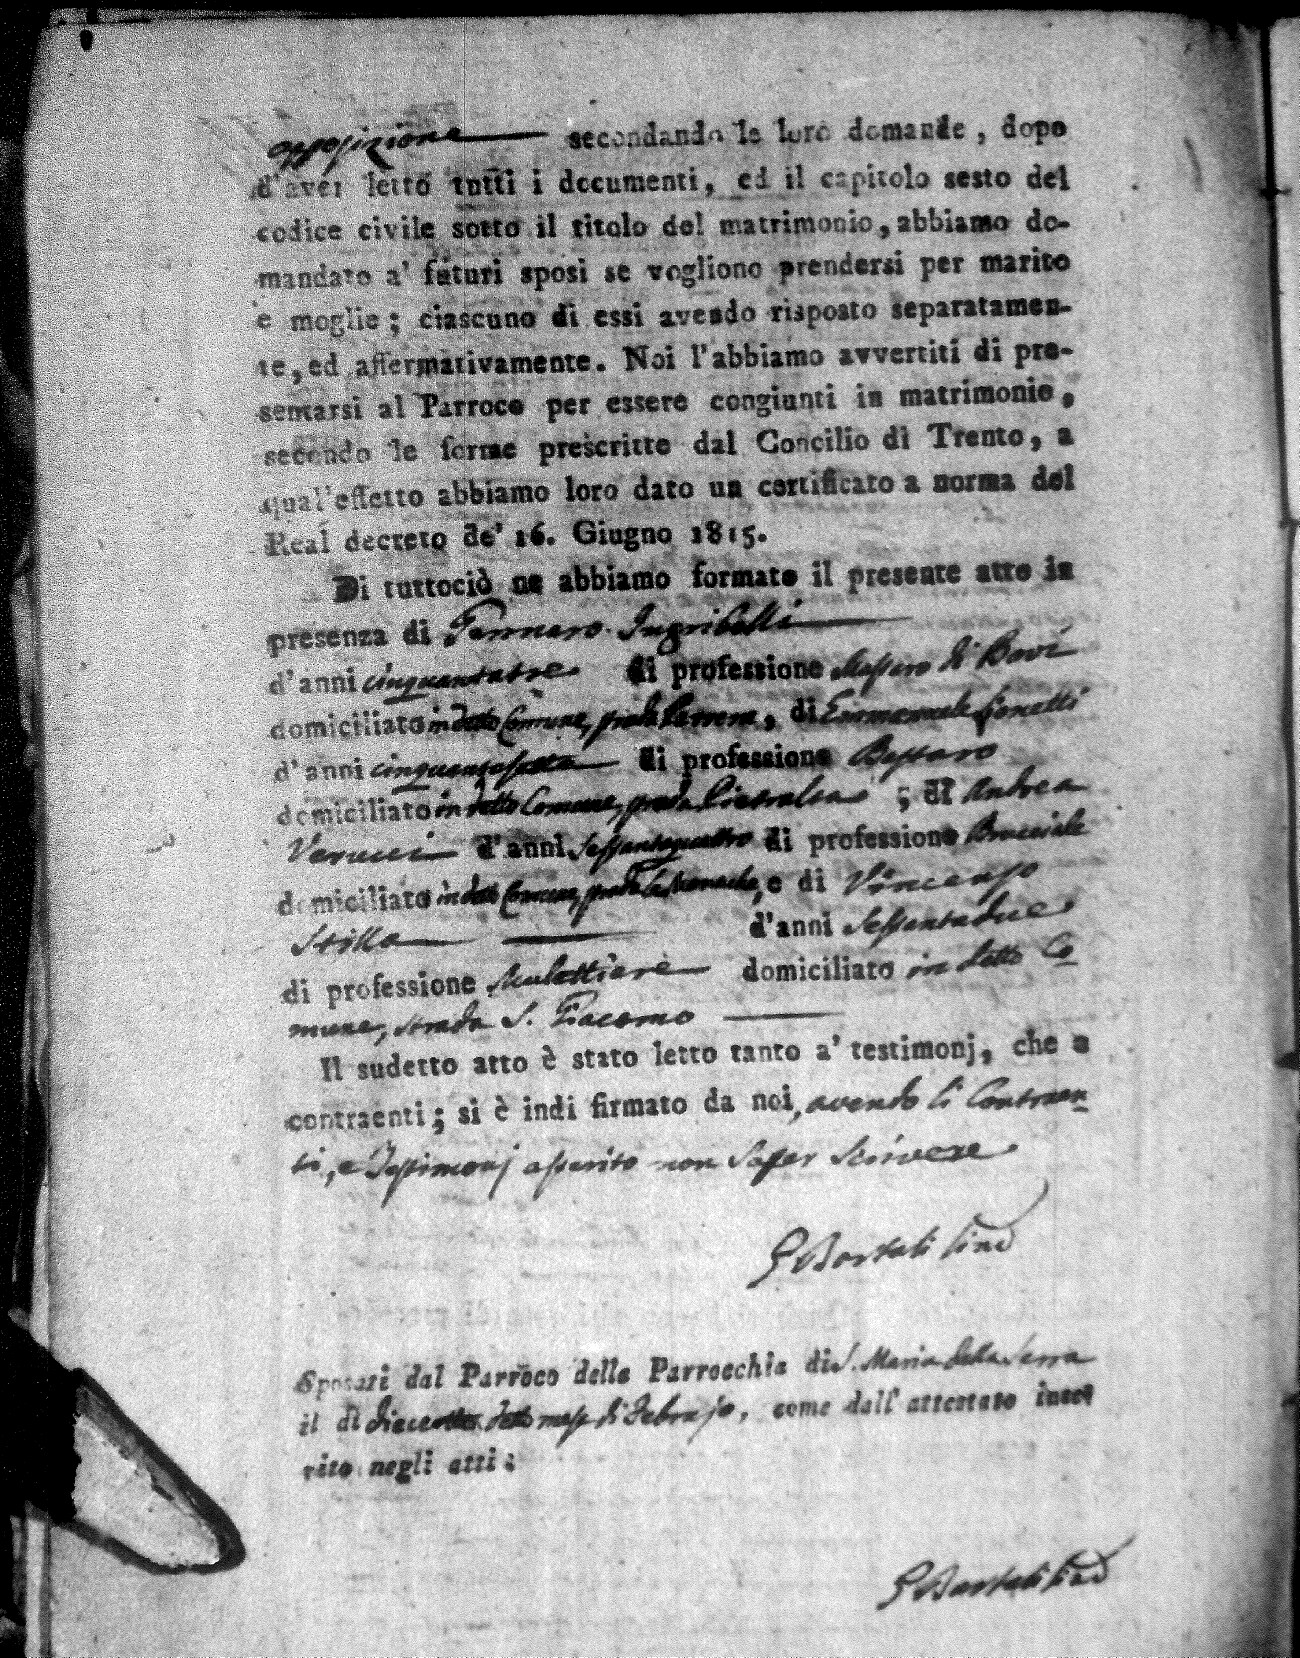 opposizione secondando le loro domande, dopo
d'aver letto tutti i documenti, ed il capitolo sesto del
codice civile sotto il titolo del matrimonio, abbiamo do-
mandato a' futuri sposi se vogliono prendersi per marito
e moglie; ciascuno di essi avendo risposto separatamen-
te, ed affermativamente. Noi l'abbiamo avvertiti di pre-
sentarsi al Parroco per essere congiunti in matrimonio,
secondo le forme prescritte dal Concilio di Trento, a
qual'effetto abbiamo loro dato un certificato a norma del
Real decreto de' 16. Giugno 1815.
Di tuttociò ne abbiamo formato il presente atto in
presenza di Gennaro
d'anni cinquantatre di professione Massaro di Bovi
domiciliato in detto Comune, strada , di Emmanuele
d'anni cinquantasette di professione
domiciliato in detto Comune, strada ; di Andrea
d'anni Sessantaquattro di professione Bracciale
domiciliato in detto Comune, strada , e di Vincenzo
Stilla d'anni Sessantadue
di professione Mulattiere domiciliato in detto Co
mune, strada S. Giacomo
Il sudetto atto è stato letto tanto a' testimonj, che a
contraenti; si è indi firmato da noi, avendo li Contraen
ti, e Testimonj asserito non saper scrivere
Sposati dal Parroco della Parrocchia di S. Maria della Serra
il dì dieceotto detto mese di Febrajo, come dall' attestato inse
rito negli atti;